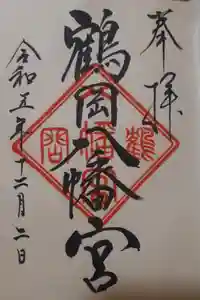 奉拝
鶴岡八幡宮
令和五年十二月二日